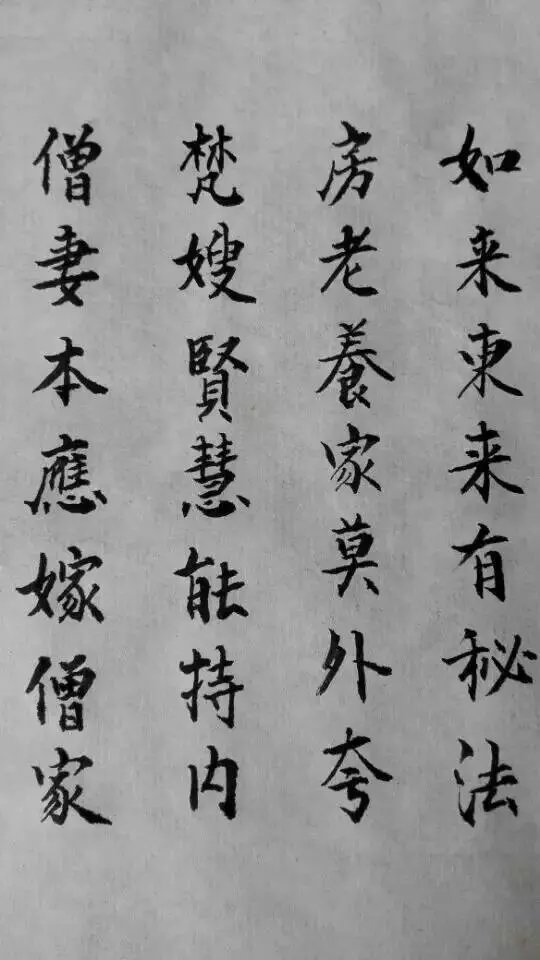 如来東来有秘法
房老養家莫外夸
梵嫂賢慧能持内
僧妻本應嫁僧家